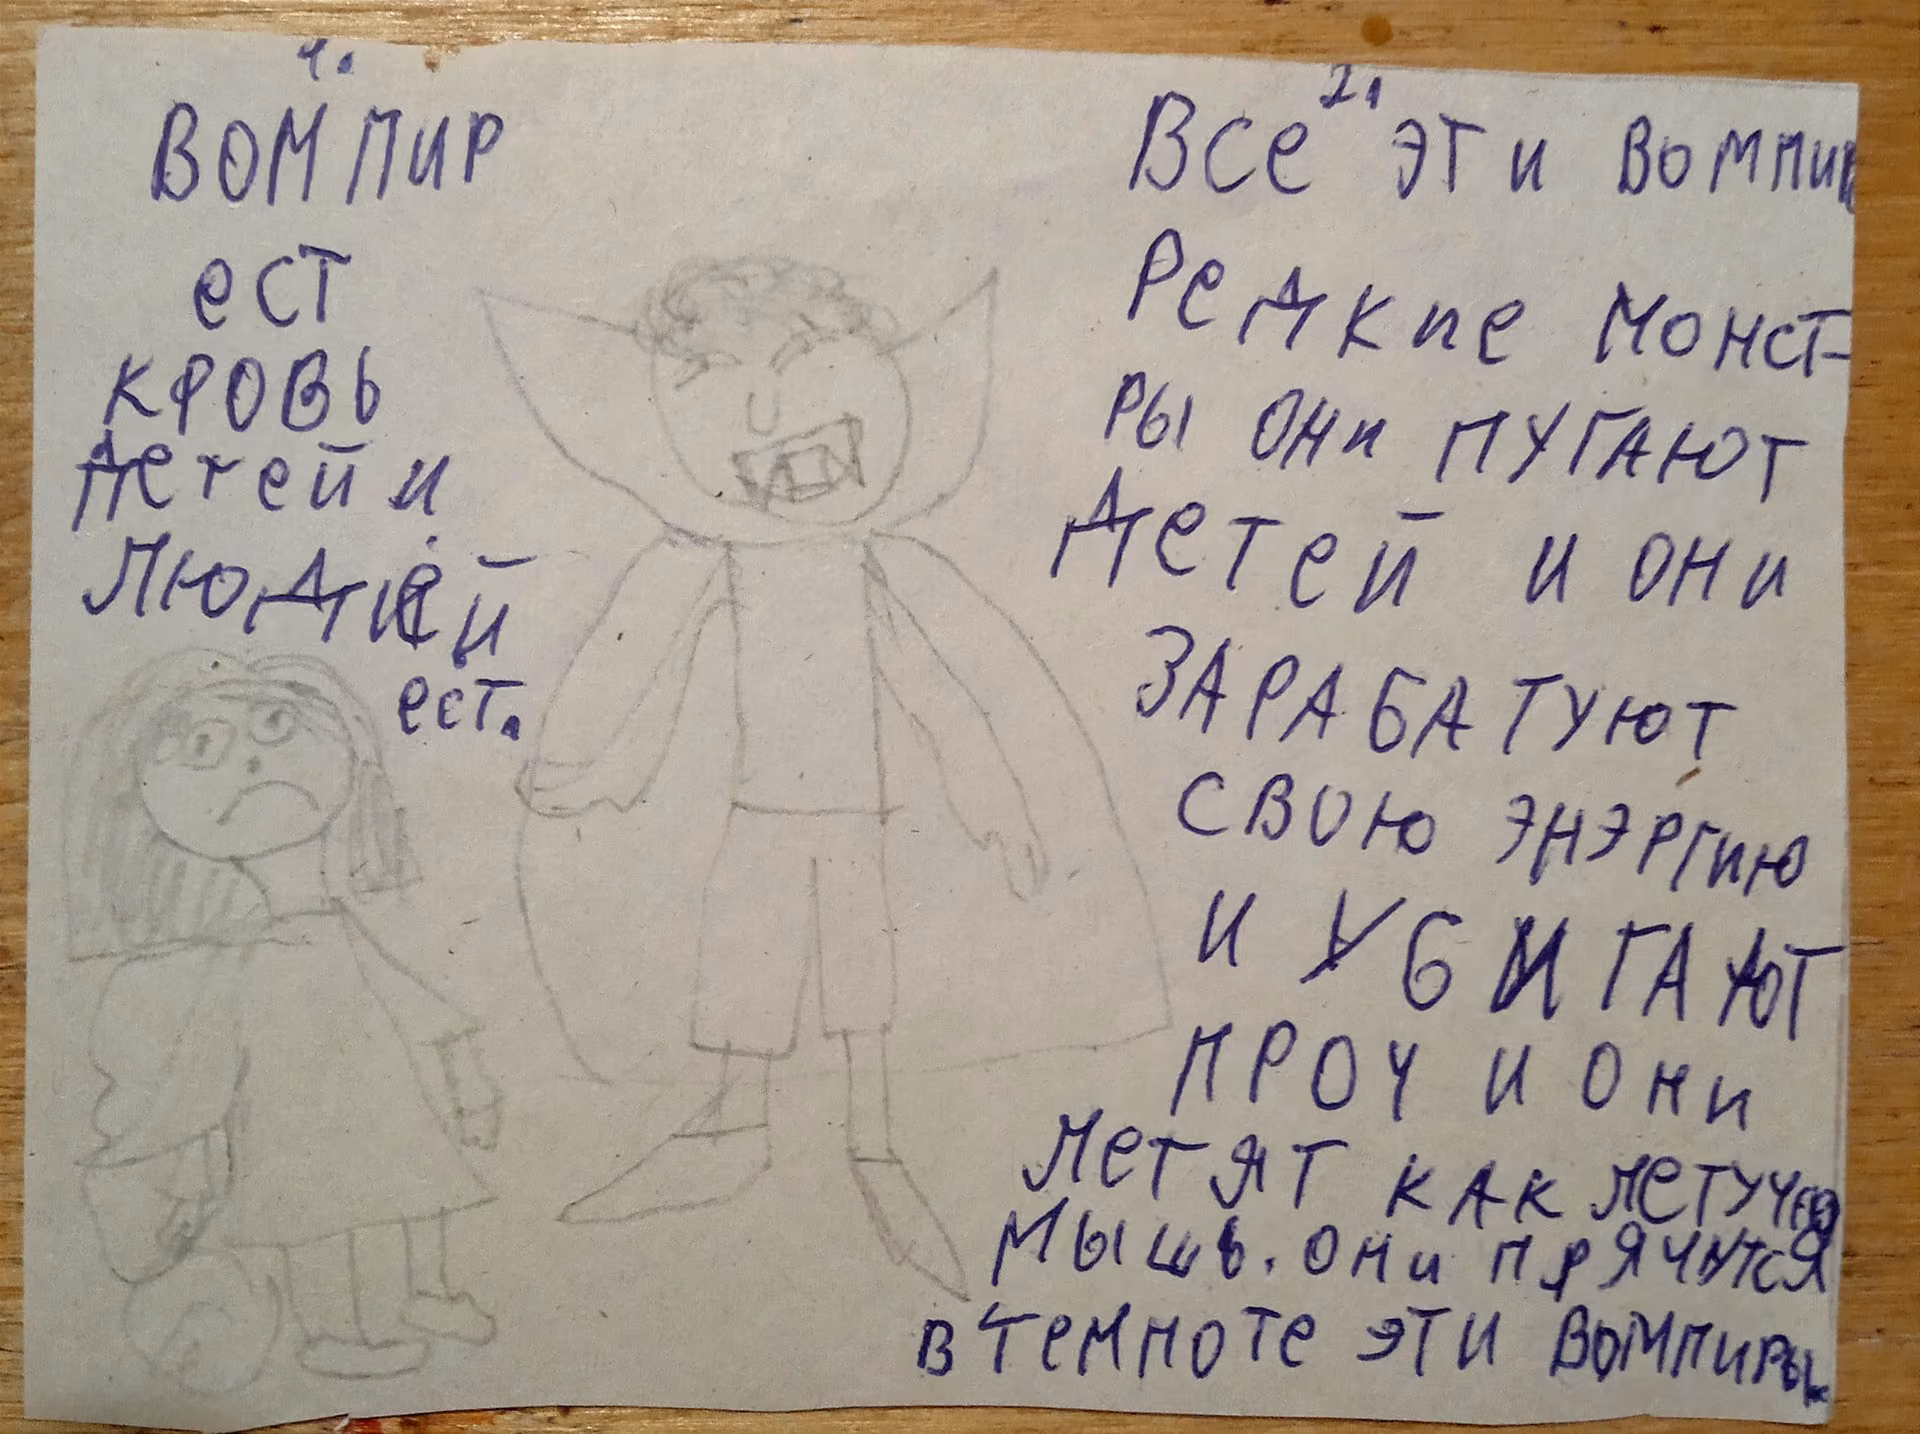 1.
ВОМПИР
ест
кровь
детей и
людей
ест.
2.
Все эти вомпи
редкие монст-
ры они пугают
детей и они
зарабатуют
свою энэргию
и убигают
проч и они
летят как летучея
мышь. они прячутся
в темноте эти вомпиры.